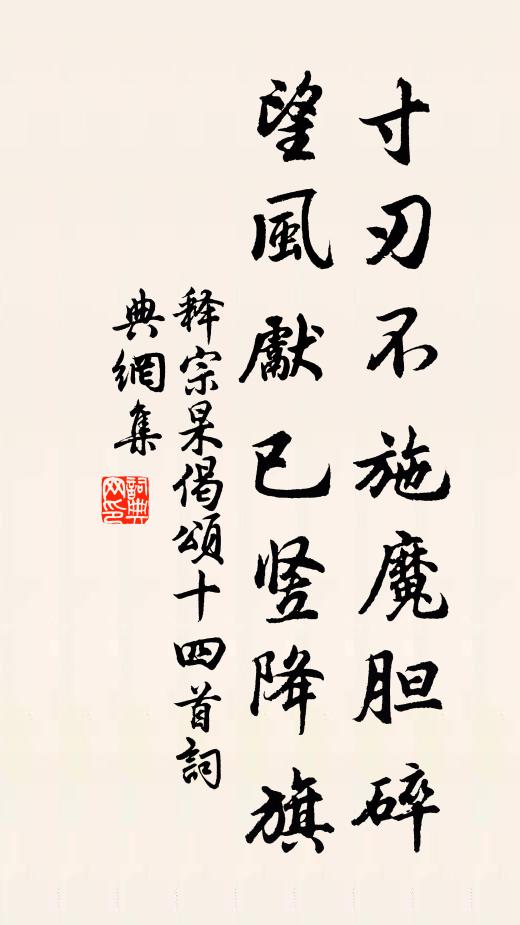 寸刃不施魔胆碎
望風獻已竖降旗
释宗杲偈頌十四首詞
典網集
詞典網印